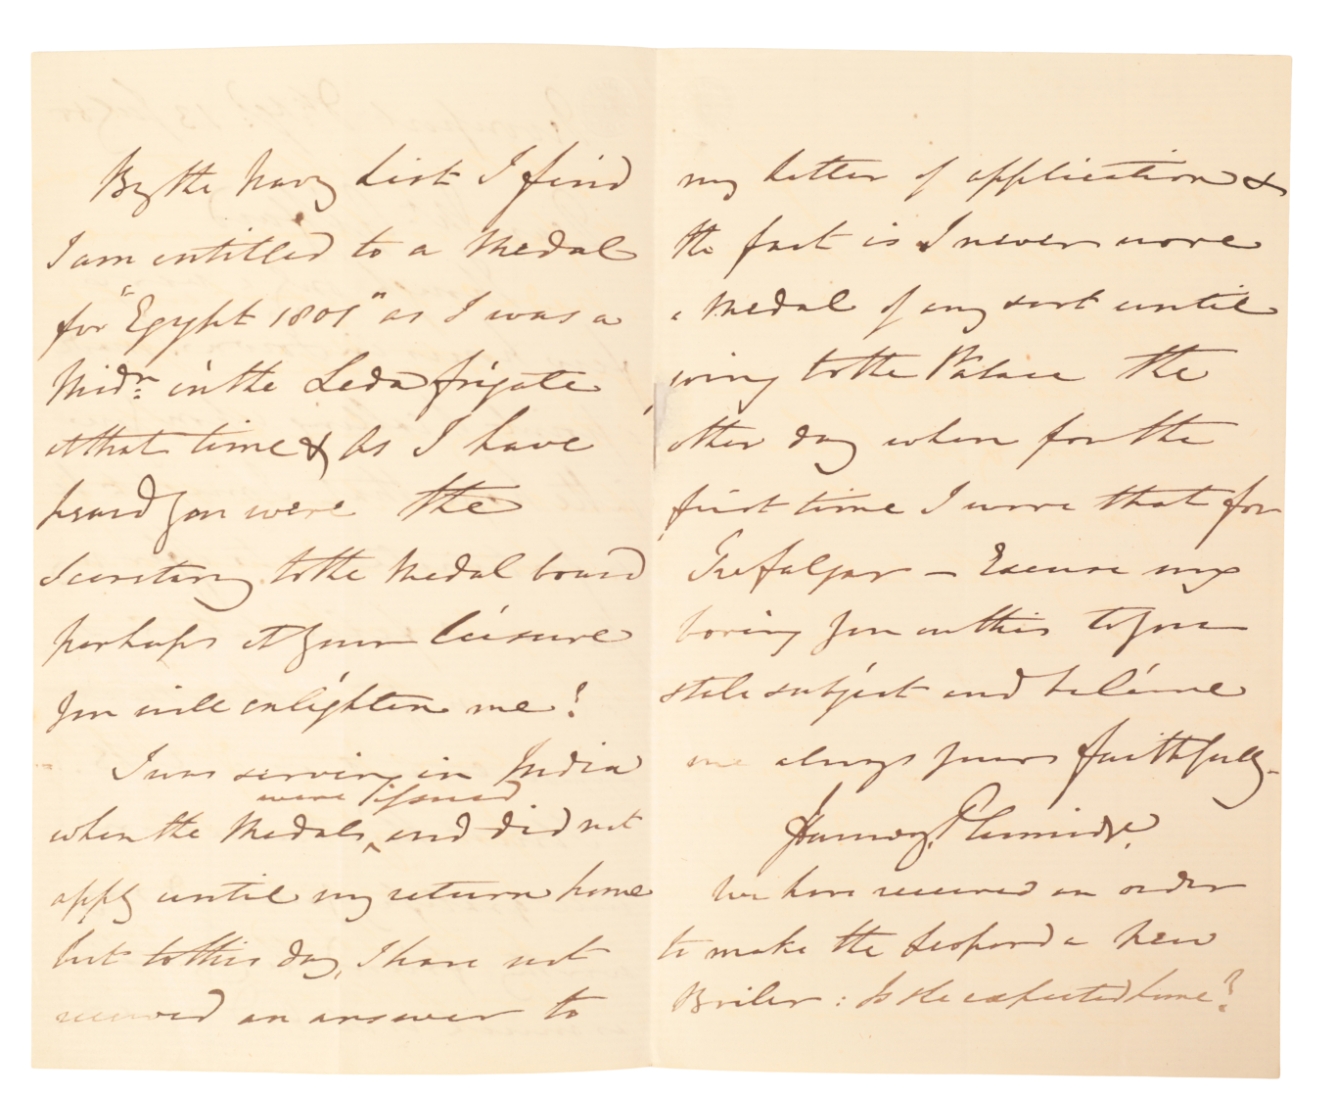 By the Navy List I find
I am entitled to a Medal
for "Egypt 1801" as I was a
Midn. in the Leda frigate
at that time & As I have
heard you were the
Secretary to the Medal board
perhaps at your leisure
you will enlighten me?
I was serving in India
were issued
when the Medals ^ and did not
apply until my return home
but to this day, I have not
received an answer to
my letter of application &
the fact is I never wore
a Medal of any sort until
going to the Palace the
other day when for the
first time I wore that for
Trafalgar – Excuse my
boring you on this to you
stale subject and believe
me always yours faithfully –
Plumridge.
We have received an order
to make the Leopard a new
Boiler: Is she expected home?